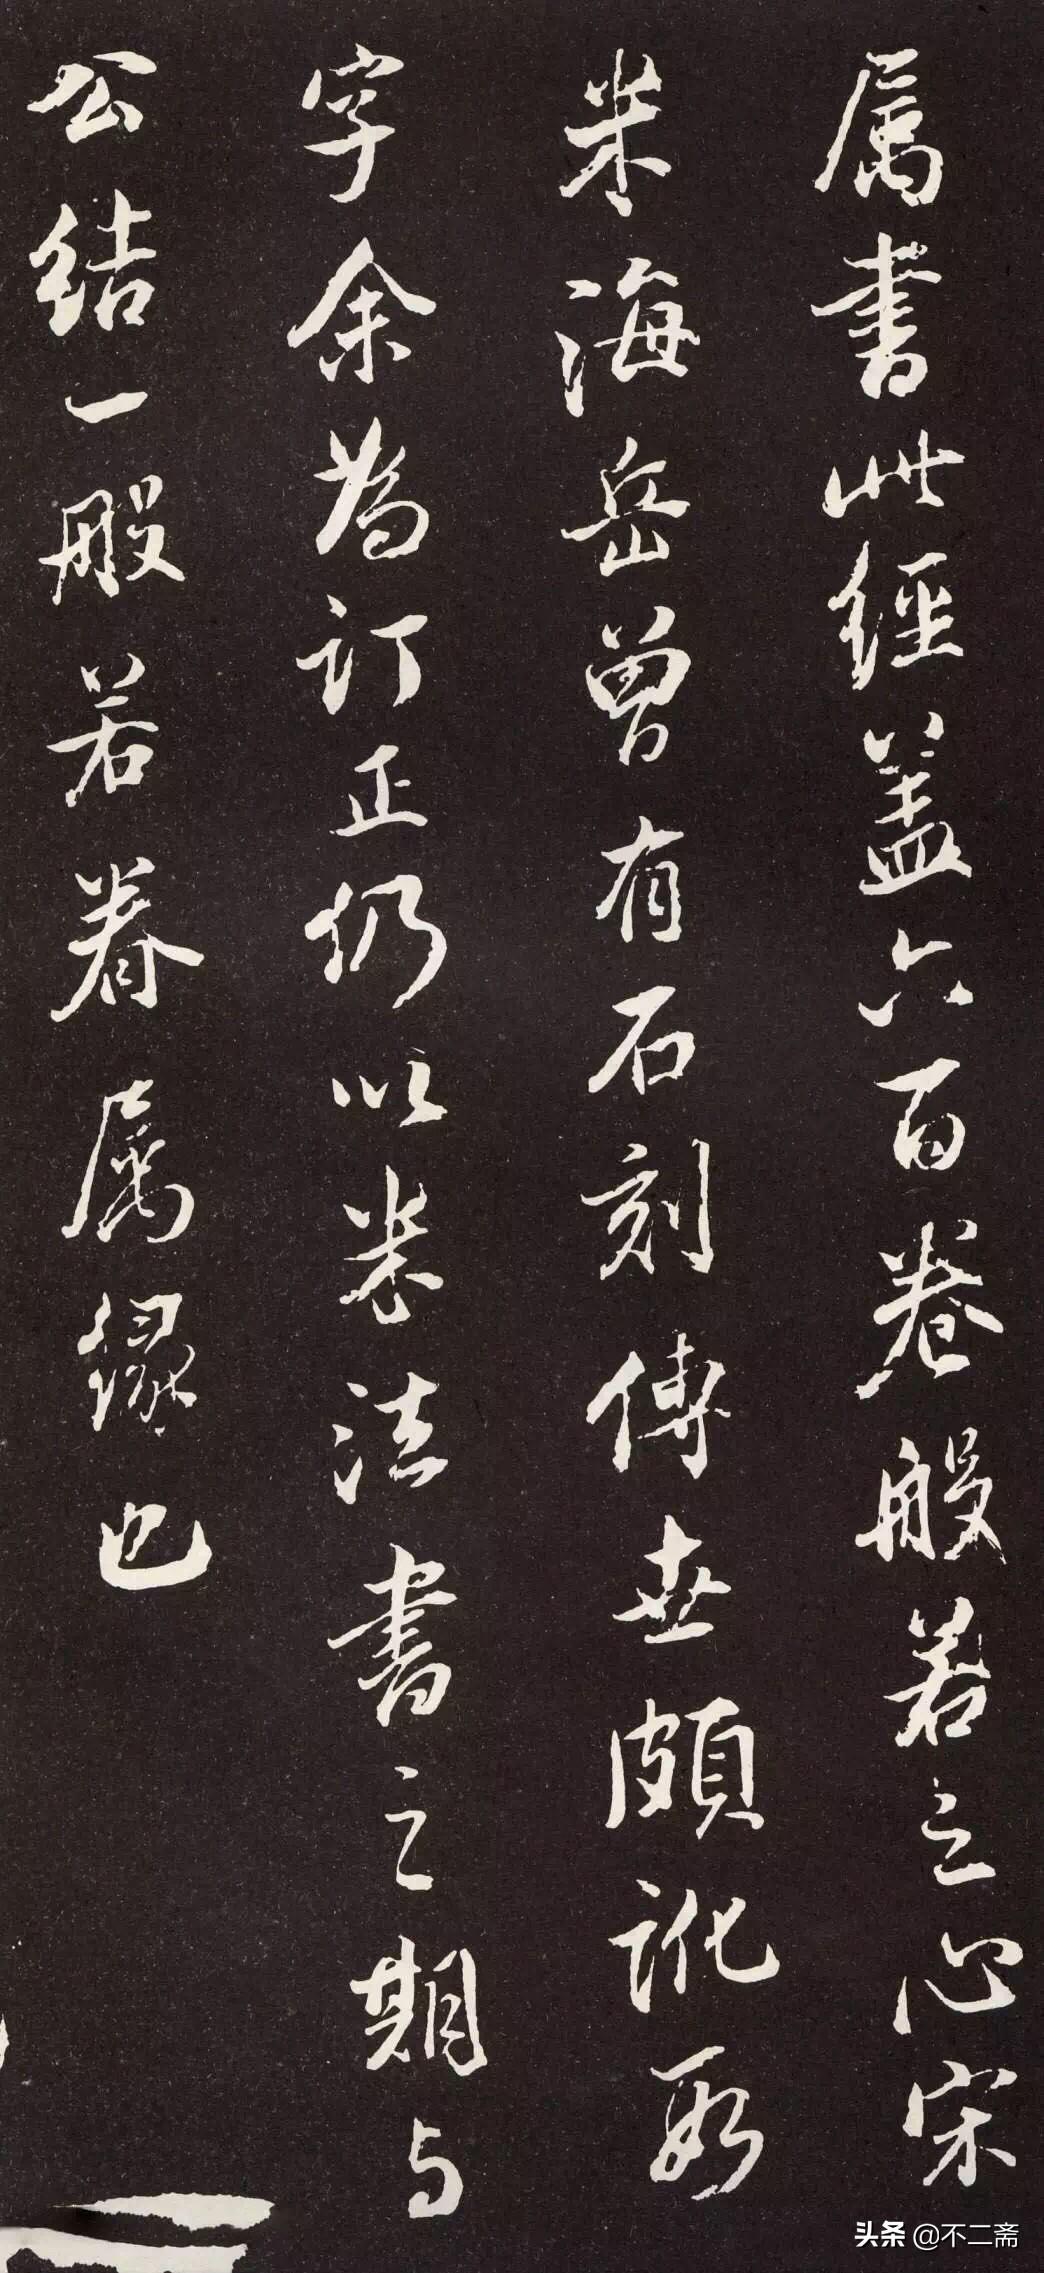 属書此經盖六百卷般若之心宋
米海岳曾有石刻傳世頗訛數
字余為訂正仍以米法書之期与
公結一般若眷属緣也
头条 @不二斋